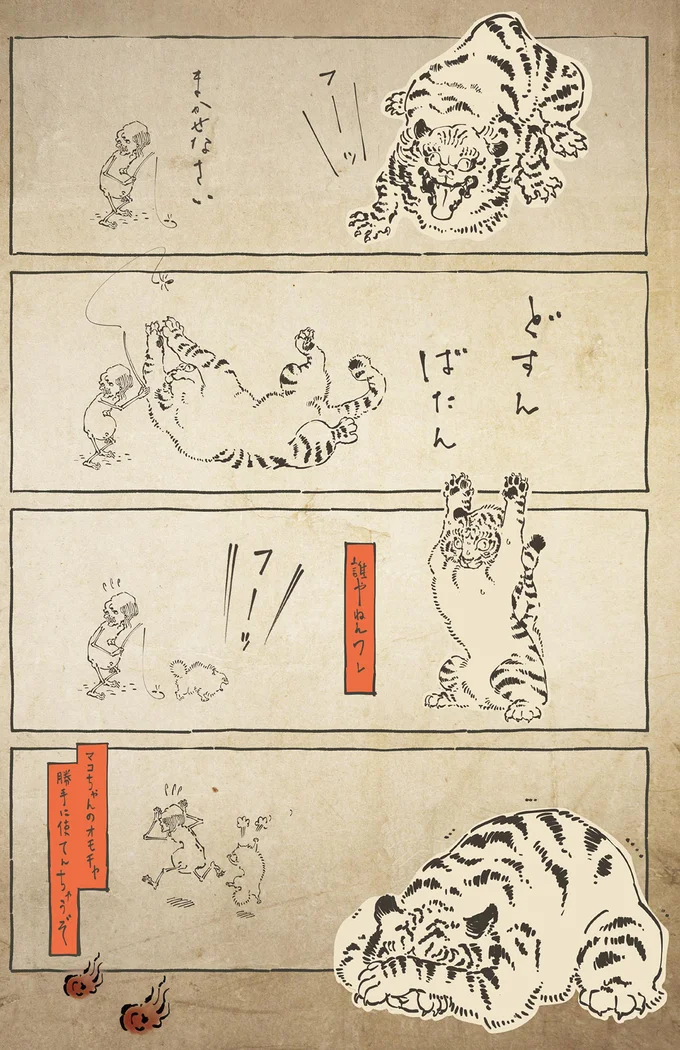 フーッ
まかせなさい
どすん
ばたん
誰やねんワレ
フーッ
マコちゃんのオモチャ
勝手に使てんちゃうぞ